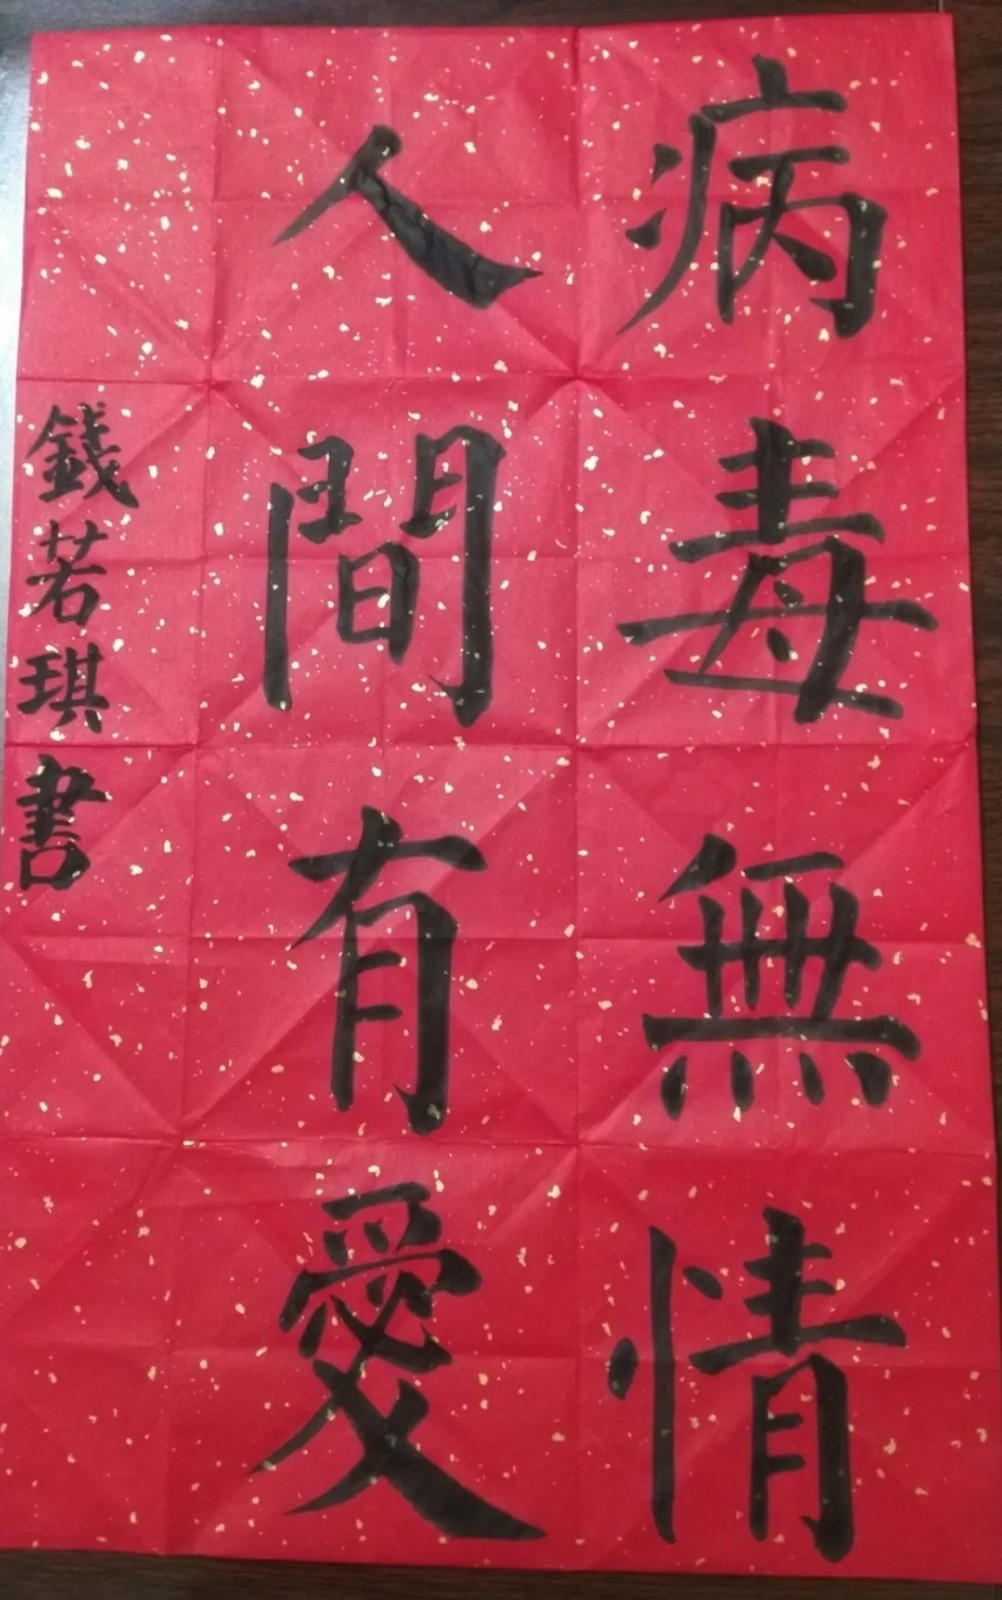 病毒無情
人間有愛
錢若琪書